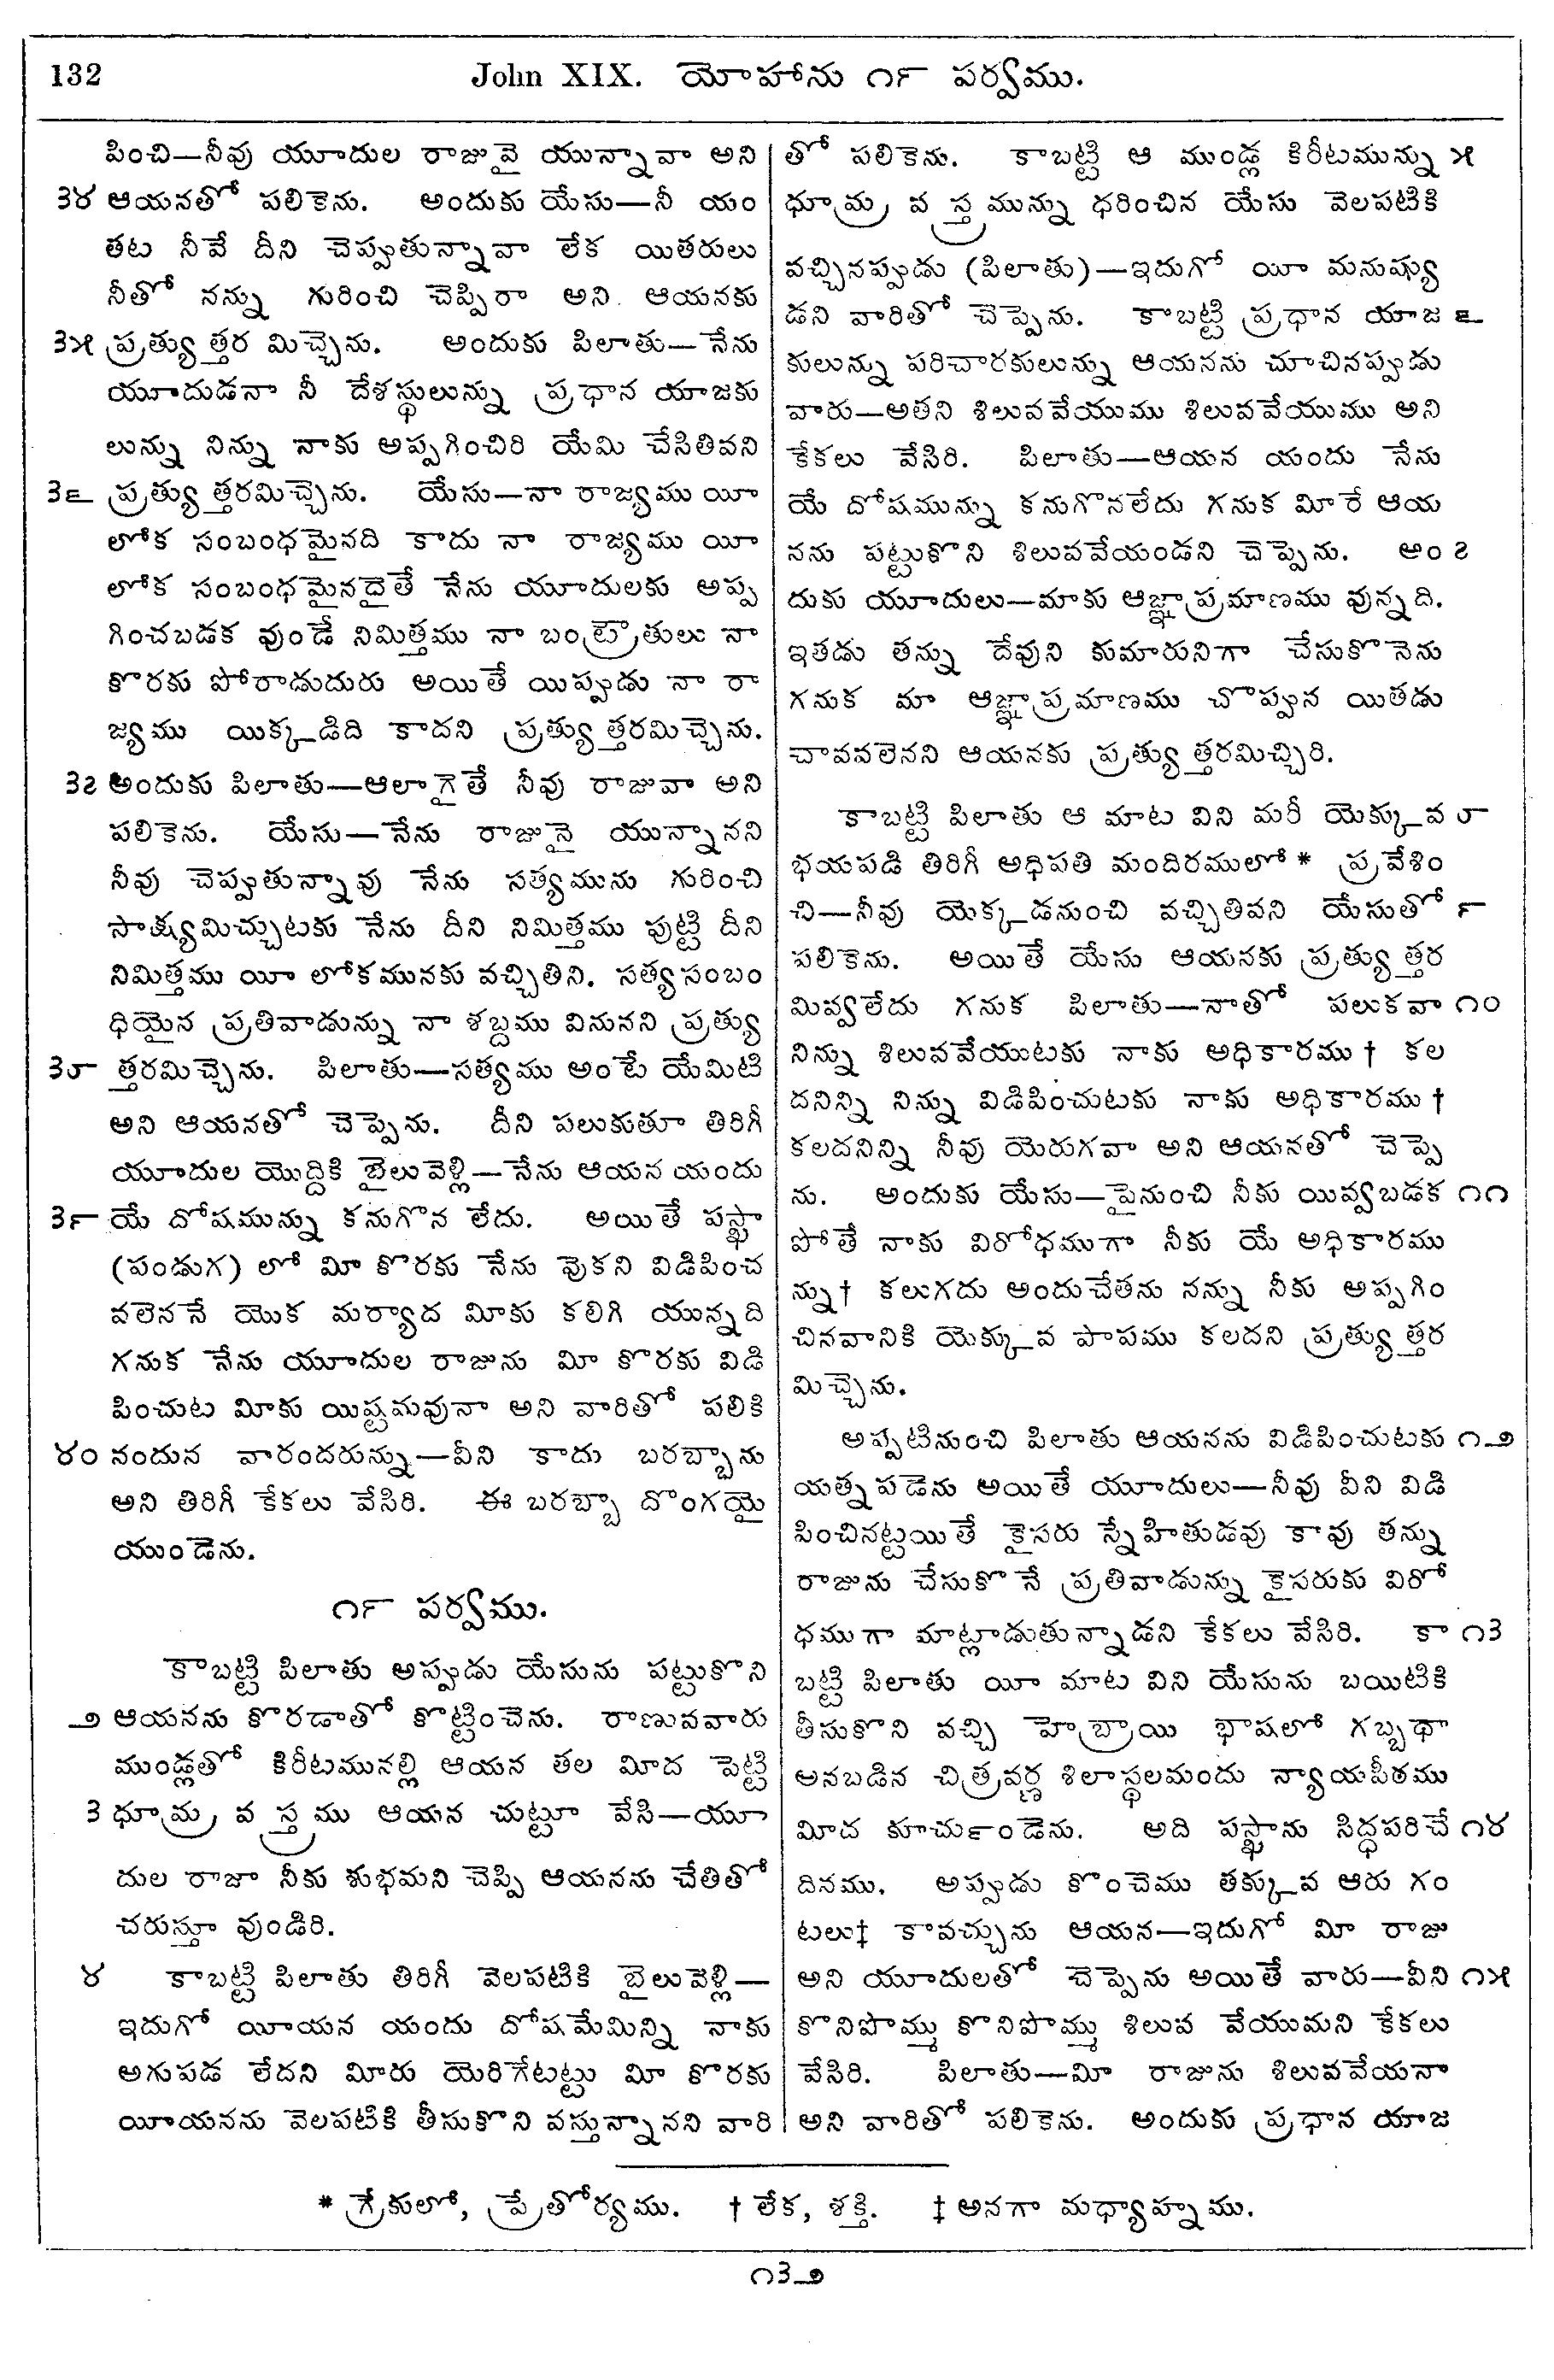 132 John XIX. యోహాను ౧౯ పర్వము.
పించి—నీవు యూదుల రాజువై యున్నావా అని
౩౪ ఆయనతో పలికెను. అందుకు యేసు—నీ యం
తట నీవే దీని చెప్పుతున్నావా లేక యితరులు
నీతో నన్ను గురించి చెప్పిరా అని ఆయనకు
౩౫ ప్రత్యుత్తర మిచ్చెను. అందుకు పిలాతు—నేను
యూదుడనా నీ దేశస్థులున్ను ప్రధాన యాజకు
లున్ను నిన్ను నాకు అప్పగించిరి యేమి చేసితివని
౩౬ ప్రత్యుత్తరమిచ్చెను. యేసు—నా రాజ్యము యీ
లోక సంబంధమైనది కాదు నా రాజ్యము యీ
లోక సంబంధమైనదైతే నేను యూదులకు అప్ప
గించబడక వుండే నిమిత్తము నా బంట్రౌతులు నా
కొరకు పోరాడుదురు అయితే యిప్పుడు నా రా
జ్యము యిక్కడిది కాదని ప్రత్యుత్తరమిచ్చెను.
౩౭ అందుకు పిలాతు—ఆలాగైతే నీవు రాజువా అని
పలికెను. యేసు—నేను రాజునై యున్నానని
నీవు చెప్పుతున్నావు నేను సత్యమును గురించి
సాక్ష్యమిచ్చుటకు నేను దీని నిమిత్తము పుట్టి దీని
నిమిత్తము యీ లోకమునకు వచ్చితిని. సత్యసంబం
ధియైన ప్రతివాడున్ను నా శబ్దము వినునని ప్రత్యు
౩౮ త్తరమిచ్చెను. పిలాతు—సత్యము అంటే యేమిటి
అని ఆయనతో చెప్పెను. దీని పలుకుతూ తిరిగీ
యూదుల యొద్దికి బైలువెళ్లి—నేను ఆయన యందు
౩౯ యే దోషమున్ను కనుగొన లేదు. అయితే పస్ఖా
(పండుగ) లో మీ కొరకు నేను వొకని విడిపించ
వలెననే యొక మర్యాద మీకు కలిగి యున్నది
గనుక నేను యూదుల రాజును మీ కొరకు విడి
పించుట మీకు యిష్టమవునా అని వారితో పలికి
౪౦ నందున వారందరున్ను—వీని కాదు బరబ్బాను
అని తిరిగీ కేకలు వేసిరి. ఈ బరబ్బా దొంగయై
యుండెను.
౧౯ పర్వము.
కాబట్టి పిలాతు అప్పుడు యేసును పట్టుకొని
౨ ఆయనను కొరడాతో కొట్టించెను. రాణువవారు
ముండ్లతో కిరీటమునల్లి ఆయన తల మీద పెట్టి
౩ ధూమ్ర వస్త్రము ఆయన చుట్టూ వేసి—యూ
దుల రాజా నీకు శుభమని చెప్పి ఆయనను చేతితో
చరుస్తూ వుండిరి.
౪ కాబట్టి పిలాతు తిరిగీ వెలపటికి బైలువెళ్లి—
ఇదుగో యీయన యందు దోషమేమిన్ని నాకు
అగుపడ లేదని మీరు యెరిగేటట్టు మీ కొరకు
యీయనను వెలపటికి తీసుకొని వస్తున్నానని వారి
తో పలికెను. కాబట్టి ఆ ముండ్ల కిరీటమున్ను ౫
ధూమ్ర వస్త్రమున్ను ధరించిన యేసు వెలపటికి
వచ్చినప్పుడు (పిలాతు)—ఇదుగో యీ మనుష్యు
డని వారితో చెప్పెను. కాబట్టి ప్రధాన యాజ ౬
కులున్ను పరిచారకులున్ను ఆయనను చూచినప్పుడు
వారు—అతని శిలువవేయుము శిలువవేయుము అని
కేకలు వేసిరి. పిలాతు—ఆయన యందు నేను
యే దోషమున్ను కనుగొనలేదు గనుక మీరే ఆయ
నను పట్టుకొని శిలువవేయండని చెప్పెను. అం ౭
దుకు యూదులు—మాకు ఆజ్ఞాప్రమాణము వున్నది.
ఇతడు తన్ను దేవుని కుమారునిగా చేసుకొనెను
గనుక మా ఆజ్ఞాప్రమాణము చొప్పున యితడు
చావవలెనని ఆయనకు ప్రత్యుత్తరమిచ్చిరి.
కాబట్టి పిలాతు ఆ మాట విని మరీ యెక్కువ ౮
భయపడి తిరిగీ అధిపతి మందిరములో* ప్రవేశిం
చి—నీవు యెక్కడనుంచి వచ్చితివని యేసుతో ౯
పలికెను. అయితే యేసు ఆయనకు ప్రత్యుత్తర
మివ్వలేదు గనుక పిలాతు—నాతో పలుకవా ౧౦
నిన్ను శిలువవేయుటకు నాకు అధికారము† కల
దనిన్ని నిన్ను విడిపించుటకు నాకు అధికారము†
కలదనిన్ని నీవు యెరుగవా అని ఆయనతో చెప్పె
ను. అందుకు యేసు—పైనుంచి నీకు యివ్వబడక ౧౧
పోతే నాకు విరోధముగా నీకు యే అధికారము
న్ను† కలుగదు అందుచేతను నన్ను నీకు అప్పగిం
చినవానికి యెక్కువ పాపము కలదని ప్రత్యుత్తర
మిచ్చెను.
అప్పటినుంచి పిలాతు ఆయనను విడిపించుటకు ౧౨
యత్నపడెను అయితే యూదులు—నీవు వీని విడి
పించినట్టయితే కైసరు స్నేహితుడవు కావు తన్ను
రాజును చేసుకొనే ప్రతివాడున్ను కైసరుకు విరో
ధముగా మాట్లాడుతున్నాడని కేకలు వేసిరి. కా ౧౩
బట్టి పిలాతు యీ మాట విని యేసును బయిటికి
తీసుకొని వచ్చి హెబ్రాయి భాషలో గబ్బథా
అనబడిన చిత్రవర్ణ శిలాస్థలమందు న్యాయపీఠము
మీద కూచుండెను. అది పస్ఖాను సిద్ధపరిచే ౧౪
దినము. అప్పుడు కొంచెము తక్కువ ఆరు గం
టలు‡ కావచ్చును ఆయన—ఇదుగో మీ రాజు
అని యూదులతో చెప్పెను అయితే వారు—వీని ౧౫
కొనిపొమ్ము కొనిపొమ్ము శిలువ వేయుమని కేకలు
వేసిరి. పిలాతు—మీ రాజును శిలువవేయనా
అని వారితో పలికెను. అందుకు ప్రధాన యాజ
* గ్రేకులో, ప్రేతోర్యము. † లేక, శక్తి. ‡ అనగా మధ్యాహ్నము.
౧౩౨